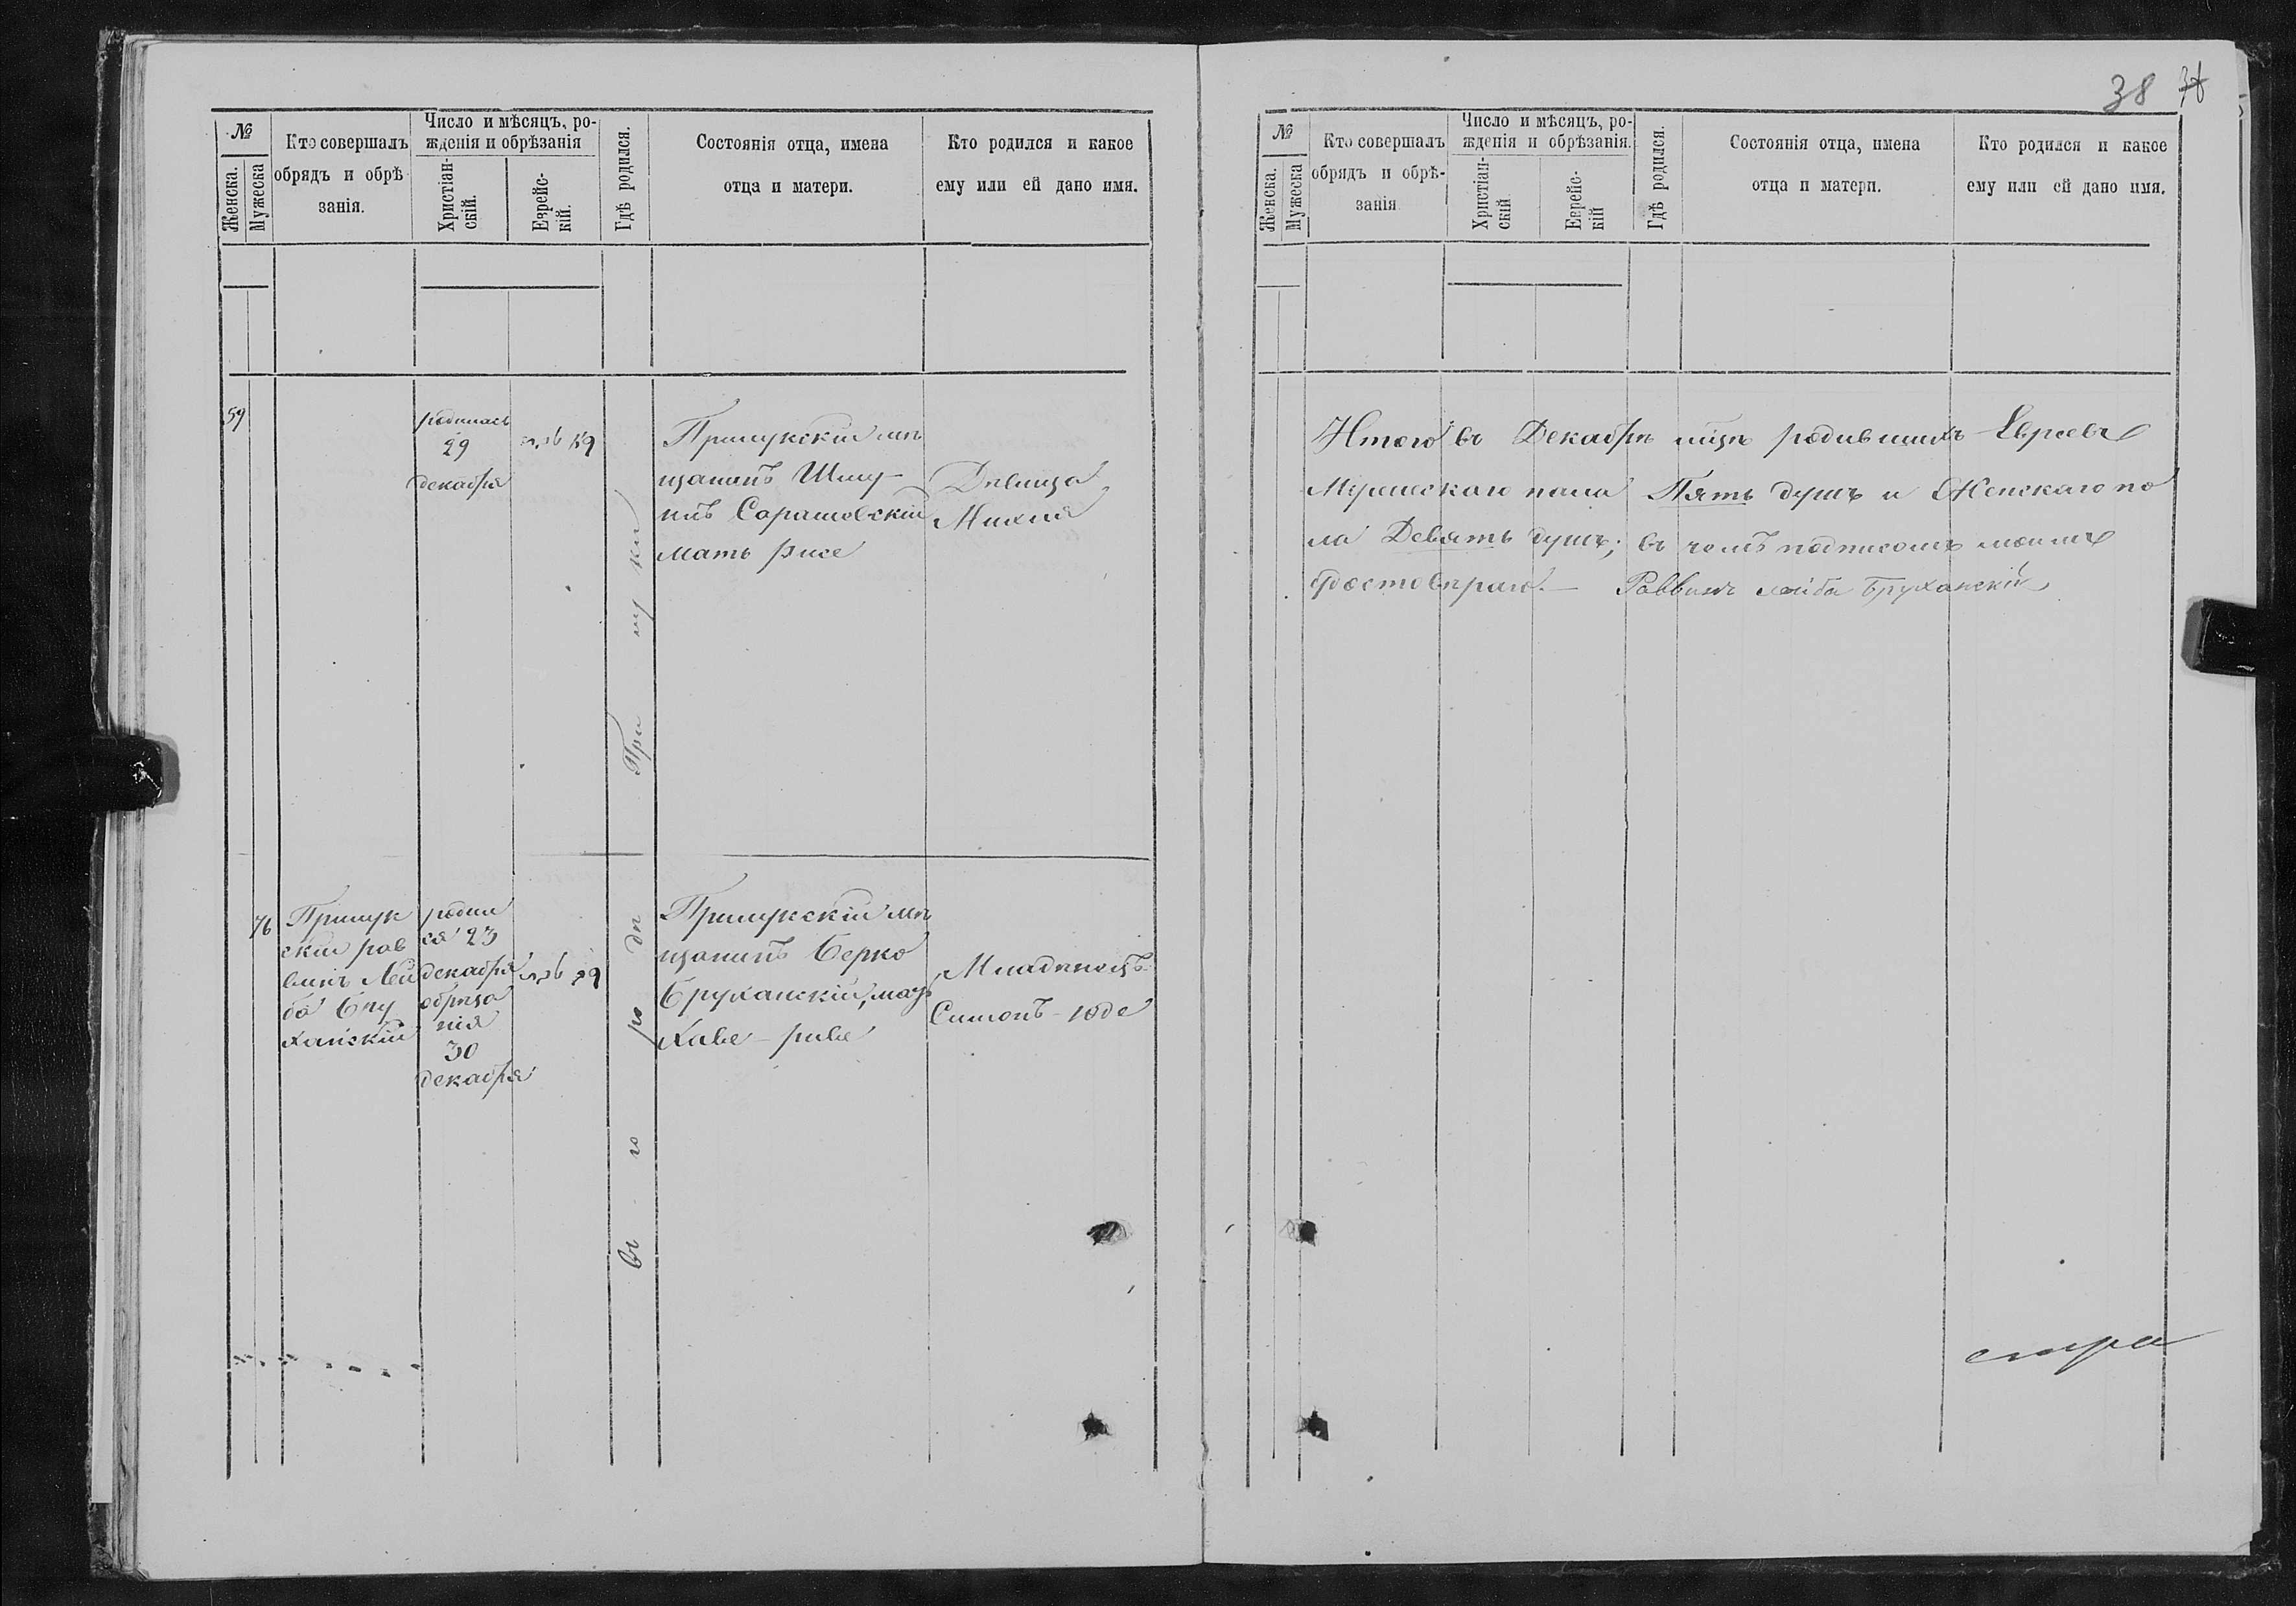 38
№
Женска.
Мужеска
Кто совершалъ
обрядъ и обрѣ
занія.
Число и мѣсяцъ, ро-
жденія и обрѣзанія
Христіан-
скій.
Еврейс-
кій.
Гдѣ родился.
Состоянія отца, имена
отца и матери.
Кто родился и какое
ему или ей дано имя.
59
родилась
29
декабря
Прилукскій мѣ
щанинъ Шму-
мать
Дѣвица
въ городѣ Прилуки
76
Прилук
скій рав
винъ Лей
ба Бру
ханскій
родил
ся 23
декабря
обрѣза
нія
30
декабря
Прилукскій мѣ
щанинъ Берко
Бруханскій, мать
Хаве - риве
Младенецъ
Симонъ - юде
№
Женска.
Мужеска
Кто совершалъ
обрядъ и обрѣ-
занія
Число и мѣсяцъ, ро-
жденія и обрѣзанія.
Христіан-
скій
Еврейс-
кій
Гдѣ родился.
Состоянія отца, имена
отца и матери.
Кто родился и какое
ему или ей дано имя.
Итого въ Декабрѣ мѣцѣ родившихъ Евреевъ
Мужескаго пола Пять душъ и Женскаго по
ла Девять душъ; въ чемъ подписомъ моимъ
Раввинъ Лейба Бруханскій